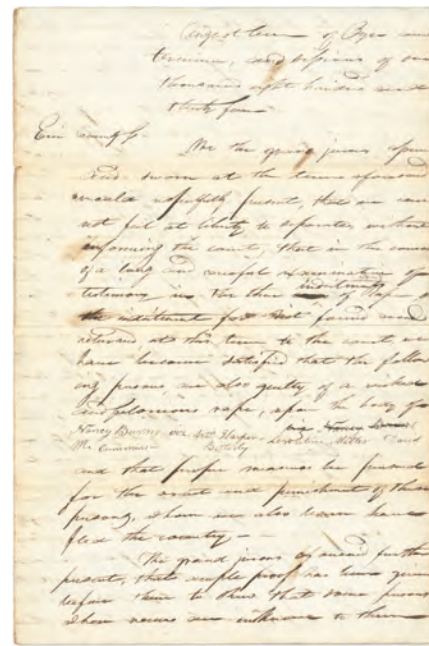 August term of Oyer and
terminer, and sessions of one
thousand eight hundred and
thirty four
Erie County ss.
We the grand jurors
and sworn at the term aforesaid
would respectfully present, that we can
not feel at liberty to separate without
informing the court, that in the course
of a long and careful examination of
testimony in for the indictments of rape
the indictment for riot found and
returned at this term to the court we
have become satisfied that the follow
ing persons are also guilty of a wicked
and felonious rape, upon the body of
Nancy
Mr Cummins
and that proper measures be pursued
for the arrest and punishment of those
persons, whom we also learn have
fled the country —
The grand jurors aforesaid further
present, that ample proof has been given
before them to show that some persons
whose names are unknown to them